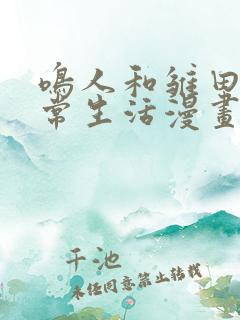 鳴人和雛田
常生活漫畫
千池
未經同意禁止轉載